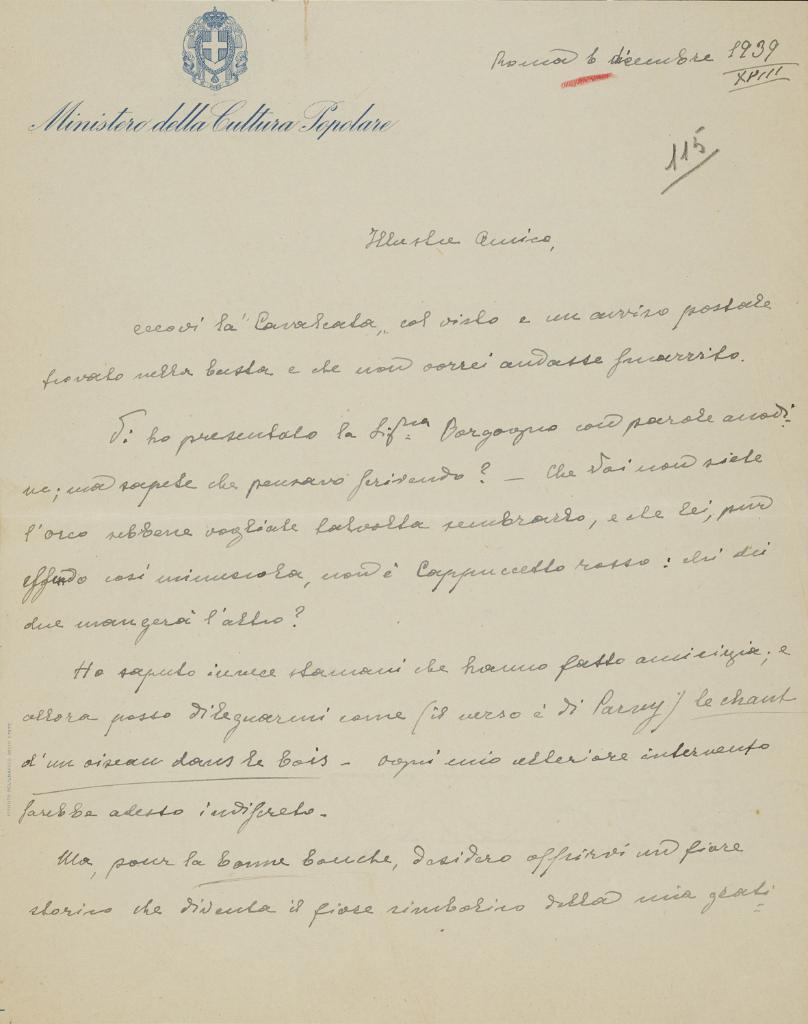 Roma 6 dicembre 1939
XVIII
Ministero della Cultura Popolare
115
Illustre Amico,
eccovi la "Cavalcata„ col visto e un avviso postale
trovato nella busta e che non vorrei andasse smarrito.
Vi ho presentato la Sig.na Borgogno con parole anodi-
ne; ma sapete che pensavo scrivendo? — Che Voi non siete
l'orco sebbene vogliate talvolta sembrarlo, e che lei, pur
essendo così minuscola, non è Cappuccetto rosso: chi dei
due mangerà l'altro?
Ho saputo invece stamani che hanno fatto amicizia; e
allora posso dileguarmi come (il verso è di Parny) le chant
d'un oiseau dans le bois — ogni mio ulteriore intervento
sarebbe adesso indiscreto.
Ma, pour la bonne bouche, desidero offrirvi un fiore
storico che diventa il fiore simbolico della mia grati-